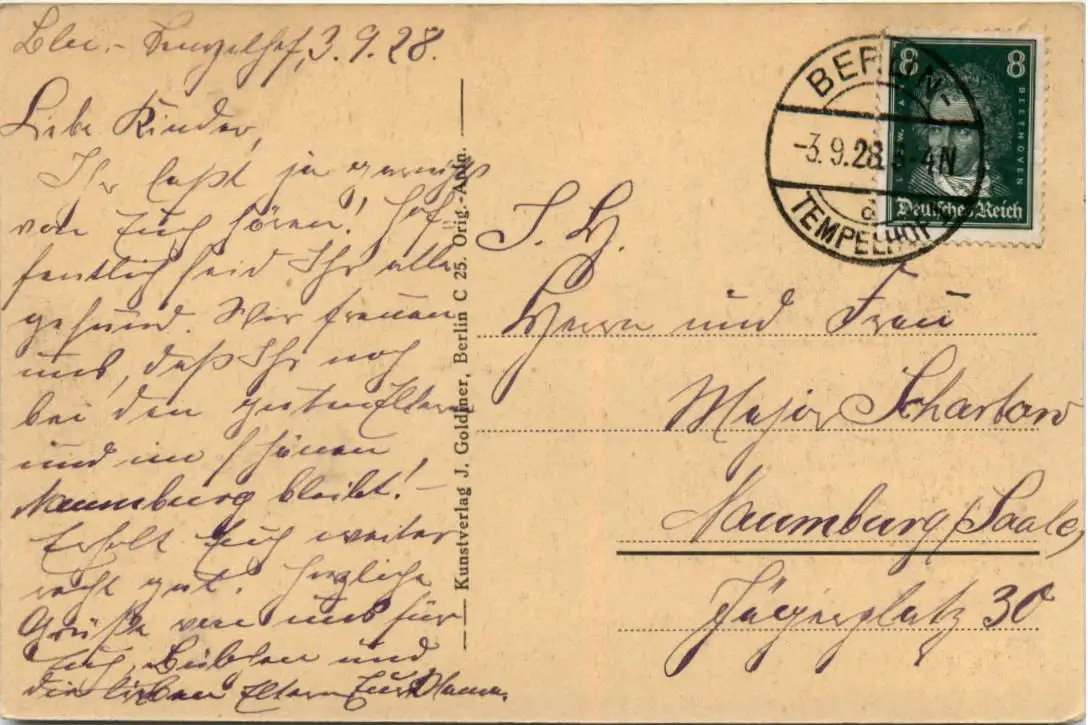 Bln.-Tempelhof, 3.9.28.
Liebe Kinder,
Ihr laßt ja garnichts
von Euch hören! Hof-
fentlich seid Ihr alle
gesund. Wir freuen
uns, daß Ihr noch
bei den guten Eltern
und im schönen
Naumburg bleibt! –
Erholt Euch weiter
recht gut. Herzliche
Grüße von uns für
Euch, Bübchen und
die lieben Eltern Eure Mama.
Kunstverlag J. Goldiner, Berlin C 25. Orig.-Aufn.
BERLIN-
-3.9.28.3-4N
TEMPELHOF
8 8
BEETHOVEN
Deutsches Reich
S. H.
Herrn und Frau
Major Schartow
Naumburg/Saale,
Jägerplatz 30